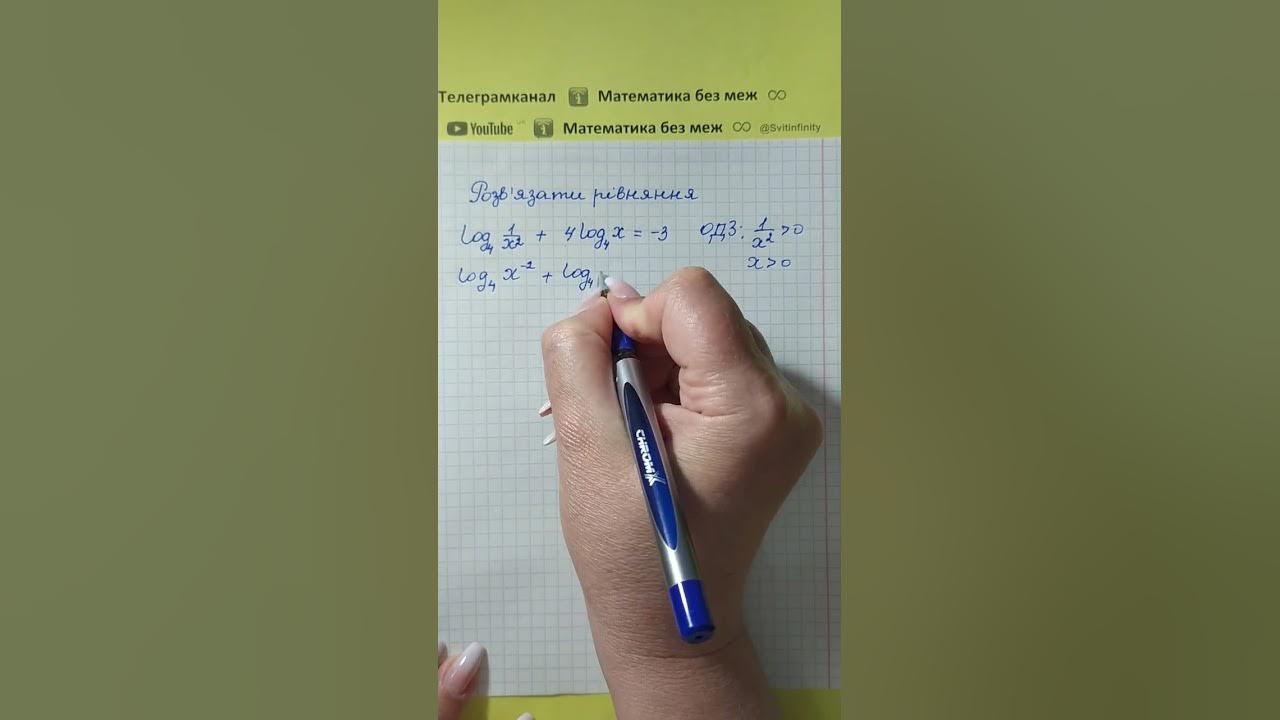 Телеграмканал Математика без меж ∞
YouTube UA Математика без меж ∞ @Svitinfinity
Розв'язати рівняння
log₄ 1/x² + 4log₄x = -3 ОДЗ: 1/x² > 0
x > 0
log₄ x⁻² + log₄
CHROMX